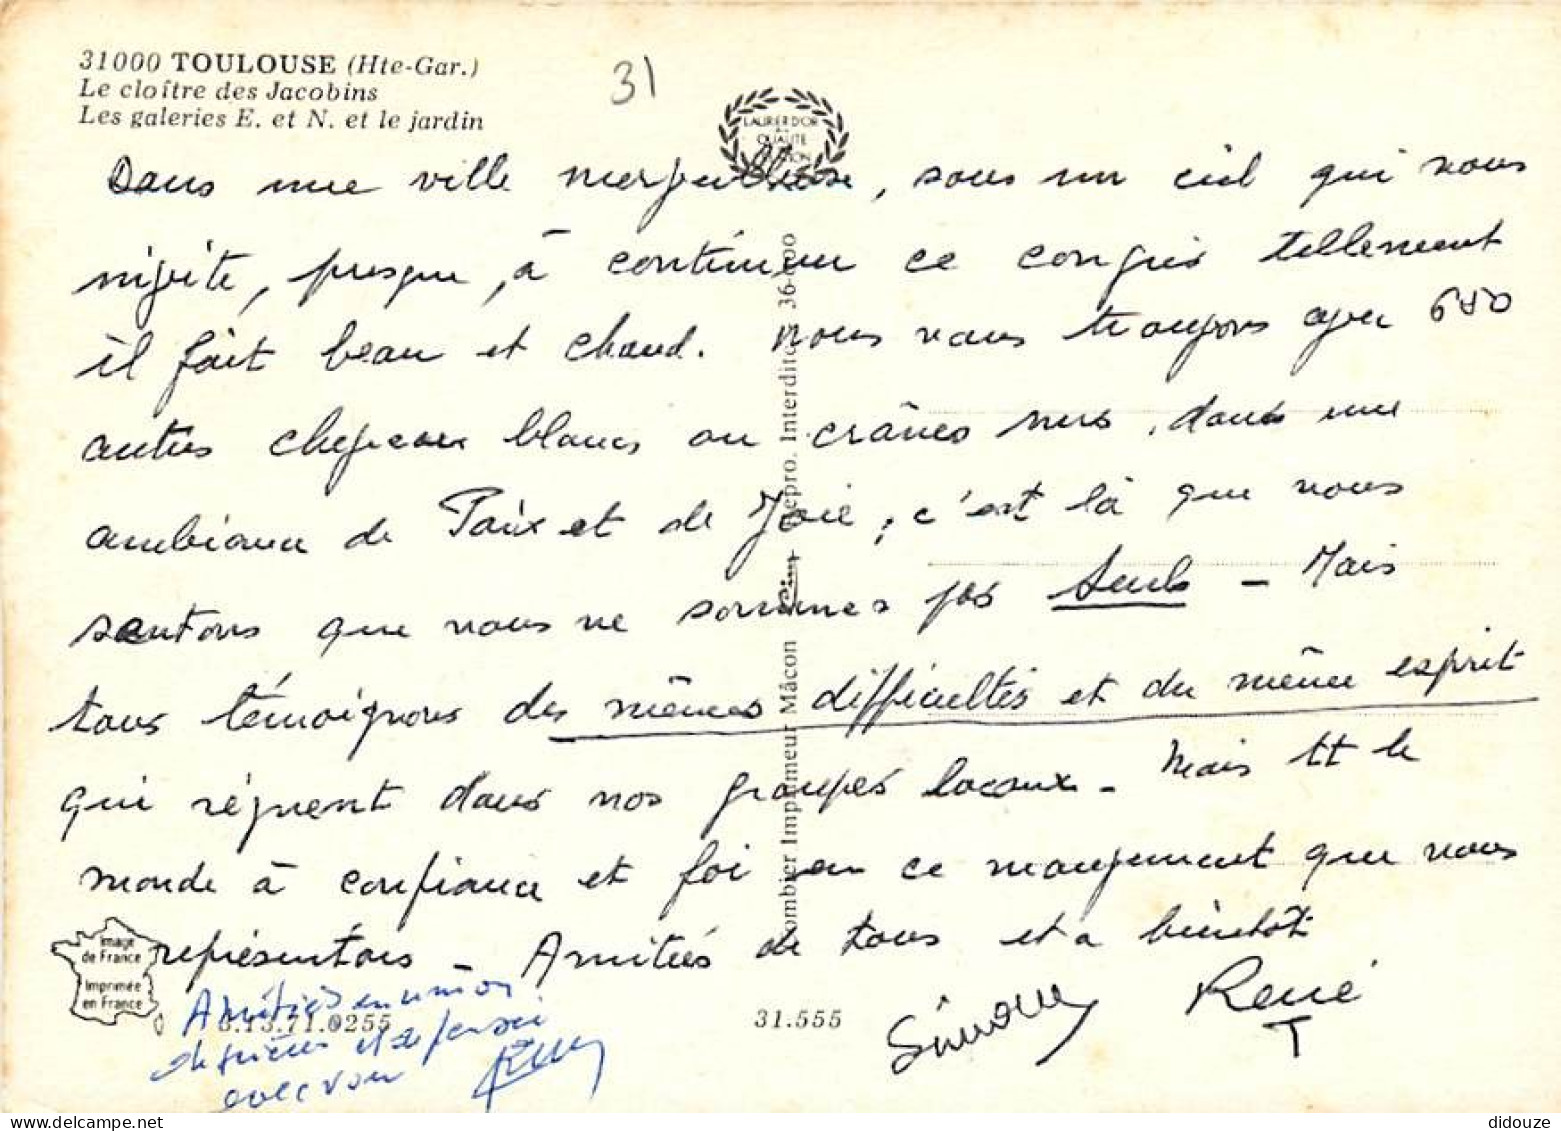 31000 TOULOUSE (Hte-Gar.)
Le cloître des Jacobins
Les galeries E. et N. et le jardin
31
LAURIER D'OR
QUALITE
Dans une ville merveilleuse, sous un ciel qui nous
invite, presque, à continuer ce congrès tellement
il fait beau et chaud. Nous nous trouvons avec 650
autres cheveux blancs ou crânes nus, dans une
ambiance de Paix et de Joie, c'est là que nous
sentons que nous ne sommes pas seuls - Mais
tous témoignons des mêmes difficultés et du même esprit
qui règnent dans nos groupes locaux - Mais tt le
monde à confiance et foi en ce mouvement que nous
représentons - Amitiés de tous et a bientôt
Simone René
T
Amitiés en union
de prières et de pensée
avec vous
Image
de France
Imprimée
en France
6.13.71.0255
31.555
Combier Imprimeur Mâcon
Repro. Interdite
didouze